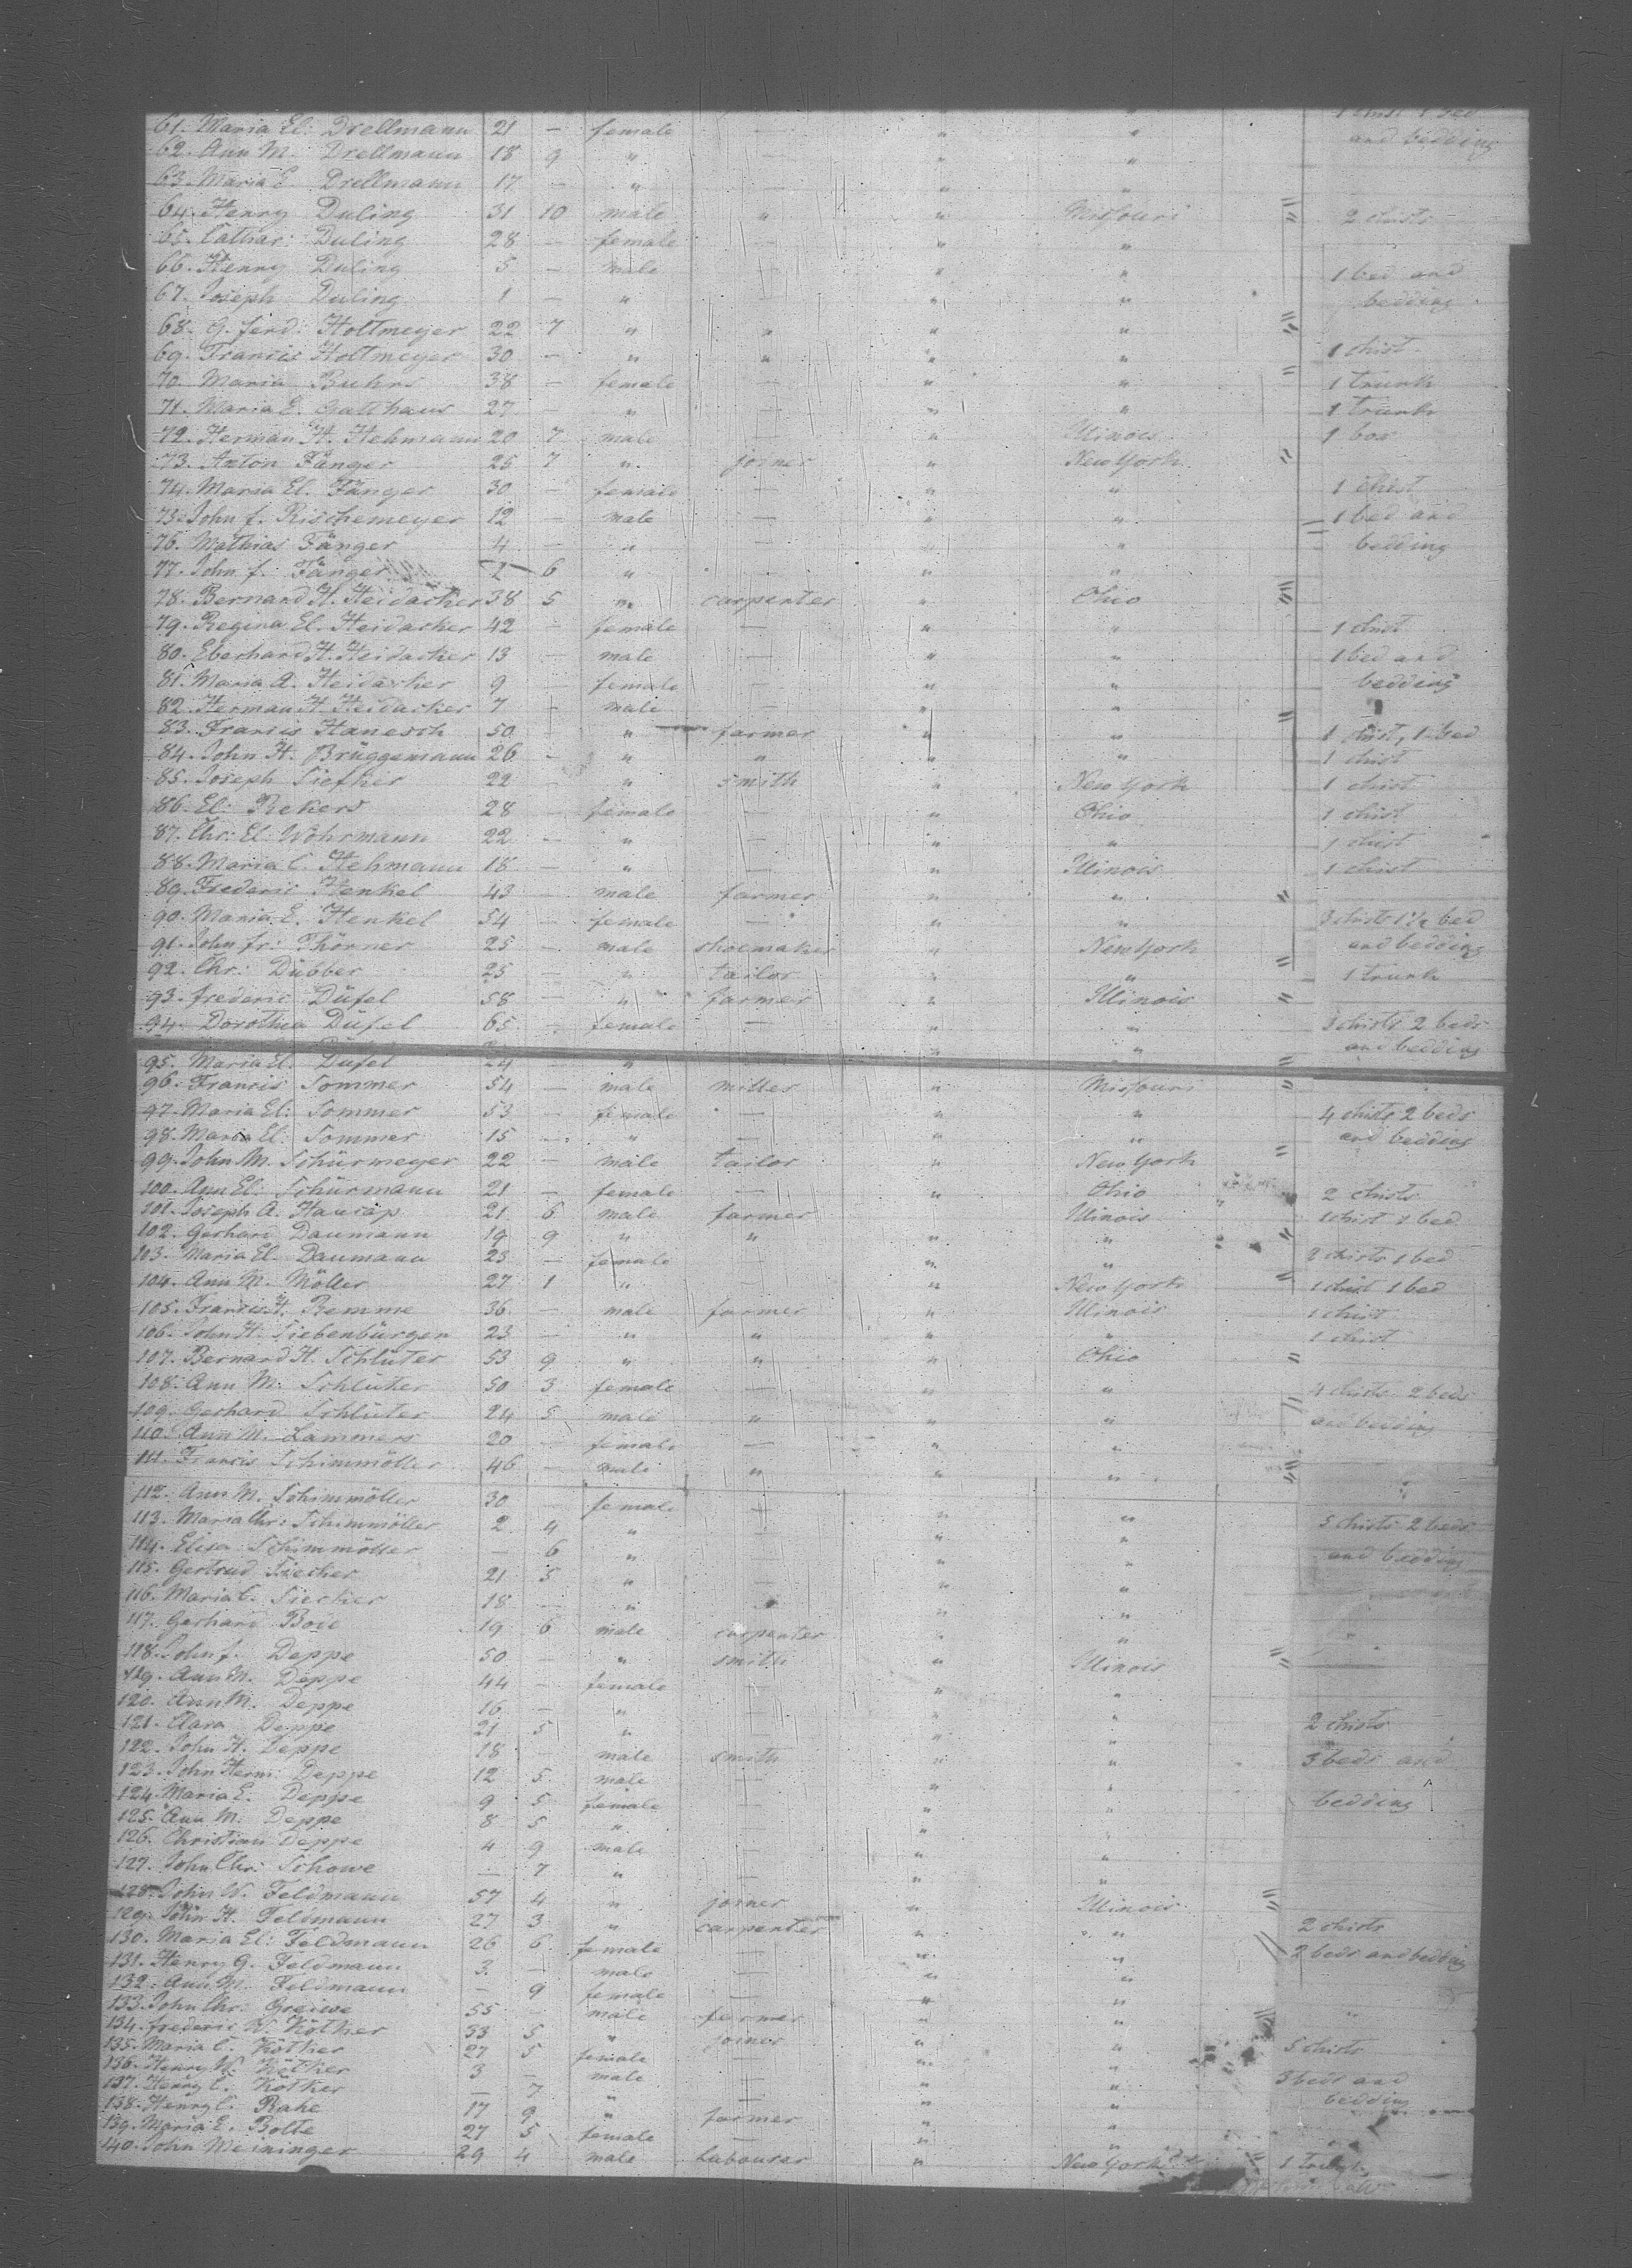 61. Maria El: Drellmann 21 — female — " " 1 chist 1 bed
62. Ann M. Drellmann 18 9 " — " " and bedding
63. Maria E Drellmann 17 — " — " "
64. Henry Duling 31 10 male " " Missouri 2 chists
65. Cathar: Duling 28 — female — " "
66. Henry Duling 5 — male — " " 1 bed and
67. Joseph Duling 1 — " — " " bedding
68. G. ferd: Holtmeyer 22 7 " " " "
69. Francis Holtmeyer 30 — " " " " 1 chist
70. Maria Buhrs 38 — female — " " 1 trunk
71. Maria E. 27 — " — " " 1 trunk
72. Herman H. Hehmann 20 7 male — " Illinois 1 box
73. Anton Fänger 25 7 " joiner " New York
74. Maria El. Fänger 30 — female — " " 1 chist
75. John f. Rischemeyer 12 — male — " " 1 bed and
76. Mathias Fänger 4 — " — " " bedding
77. John f. Fänger 6 " — " "
78. Bernard H. Heidacker 38 5 " carpenter " Ohio
79. Regina El. Heidacker 42 — female — " " 1 chist
80. Eberhard H. Heidacker 13 — male — " " 1 bed and
81. Maria A. Heidacker 9 — female — " " bedding
82. Herman H. Heidacker 7 — male — " "
83. Francis Hanesch 50 — " farmer " " 1 chist, 1 bed
84. John H. Brüggemann 26 — " " " " 1 chist
85. Joseph Siefker 22 — " smith " New York 1 chist
86. El: Rekers 28 — female — " Ohio 1 chist
87. Chr: El: Wöhrmann 22 — " — " " 1 chist
88. Maria C. Hehmann 18 — " — " Illinois 1 chist
89. Frederic Henkel 43 — male farmer " "
90. Maria E. Henkel 54 — female — " " 3 chists 1 1/2 bed
91. John fr: Thörner 25 — male shoemaker " New York and bedding
92. Chr: Dübber 25 — " tailor " " 1 trunk
93. frederic Düfel 58 — " farmer " Illinois
94. Dorothea Düfel 65 — female — " " 3 chists 2 beds
95. Maria El: Düfel 24 — " " " and bedding
96. Francis Sommer 54 — male miller " Missouri
97. Maria El: Sommer 53 — female — " " 4 chists 2 beds
98. Maria El: Sommer 15 — " — " " and bedding
99. John M. Schürmeyer 22 — male tailor " New York
100. Ann El: Schürmann 21 — female — " Ohio 2 chists
101. Joseph A. 21 6 male farmer Illinois 1 chist 1 bed
102. Gerhard Daumann 19 9 " " " "
103. Maria El. Daumann 25 — female — " " 2 chists 1 bed
104. Ann M. Möller 27 1 " — " New York 1 chist 1 bed
105. Francis H. Remme 36 — male farmer " Illinois 1 chist
106. John H. Siebenbürgen 23 — " " " " 1 chist
107. Bernard H. Schlüter 53 9 " " " Ohio
108. Ann M. Schlüter 50 3 female — " " 4 chists 2 beds
109. Gerhard Schlüter 24 5 male " " " and bedding
110. Ann M. Lammers 20 — female — " "
111. Francis Schimmöller 46 — male " " "
112. Ann M. Schimmöller 30 — female — " "
113. Maria Chr: Schimmöller 2 4 " — " " 5 chists 2 beds
114. Elisa Schimmöller — 6 " — " " and bedding
115. Gertrud Siecker 21 5 " — " "
116. Maria C. Siecker 18 — " — " "
117. Gerhard Bode 19 6 male carpenter " "
118. John f. Deppe 50 — " smith " Illinois
119. Ann M. Deppe 44 — female — " "
120. Ann M. Deppe 16 — " — " "
121. Clara Deppe 21 5 " — " " 2 chists
122. John H. Deppe 18 — male smith " " 3 beds and
123. John Herm: Deppe 12 5 male — " "
124. Maria E. Deppe 9 5 female — " " bedding
125. Ann M. Deppe 8 5 " — " "
126. Christian Deppe 4 9 male — " "
127. John Chr: Schowe — 7 " — " "
128. John W. Feldmann 57 4 " joiner " Illinois
129. John H. Feldmann 27 3 " carpenter " " 2 chists
130. Maria El: Feldmann 26 6 female — " " 2 beds and bedding
131. Henry G. Feldmann 3 — male — " "
132. Ann M. Feldmann — 9 female — " "
133. John Chr: Greiwe 55 — male farmer " "
134. frederic W. Köther 33 5 " joiner " "
135. Maria C. Köther 27 5 female — " " 5 chists
136. Henry W. Köther 3 — male — " "
137. Henry C. Köther — 7 " — " " 3 beds and
138. Henry C. Rahe 17 9 " farmer " " bedding
139. Maria E. Bolte 27 5 female — " "
140. John Meininger 29 4 male labourer " New York 1 trunk